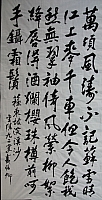 萬頃風濤不記蘇雪晴
江上麥千車但令人飽我
愁無翠袖倚風縈柳絮絳
唇得酒爛櫻珠樽前呵
手鑷霜鬚
蘇東坡浣溪沙